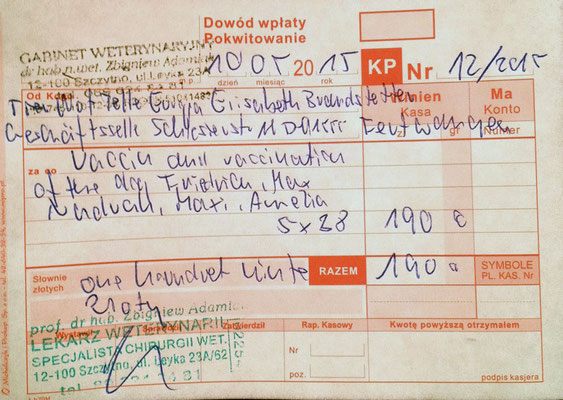 Dowód wpłaty
Pokwitowanie
GABINET WETERYNARYJNY
dr hab. n. wet. Zbigniew Adamiak
12-100 Szczytno, ul. Leyka 23A
10 05 2015 KP Nr 12/2015
dzień miesiąc rok
Od Kogo Winien Ma
Kasa Konto
zł gr Numer
Tierschutzstelle Europa Elisabeth Brandstetter
Geschäftsstelle 11 D-91555 Feuchtwangen
za co Vaccin and vaccination
of the dog Friedrich, Max
Maxi, Amelia
5 x 38 190 0
Słownie
złotych
one hundret ninte
Zloty
RAZEM 190 0 SYMBOLE
PL. KAS. Nr
prof. dr hab. Zbigniew Adamiak
LEKARZ WETERYNARII
SPECJALISTA CHIRURGII WET.
12-100 Szczytno, ul. Leyka 23A/62
Wystawił Sprawdził Zatwierdził Rap. Kasowy Kwotę powyższą otrzymałem
Nr
poz.
podpis kasjera